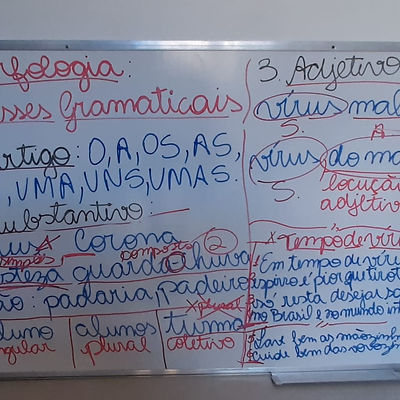 rfologia:
sses Gramaticais
artigo: O, A, OS, AS,
, UMA, UNS, UMAS.
ubstantivo:
Corona
composto 2
guarda chuva
ão: padaria, padeiro
plural
luno alunos turma
ngular plural coletivo
3. Adjetivo
vírus mal
S. A
vírus do ma
S. locução
adjetiv
Tempo de víru
Em tempo de víru
espirro é pior que tirot
só resta desejar sa
no Brasil e no mundo in
Lave bem as mãozinh
cuide bem das vovozin